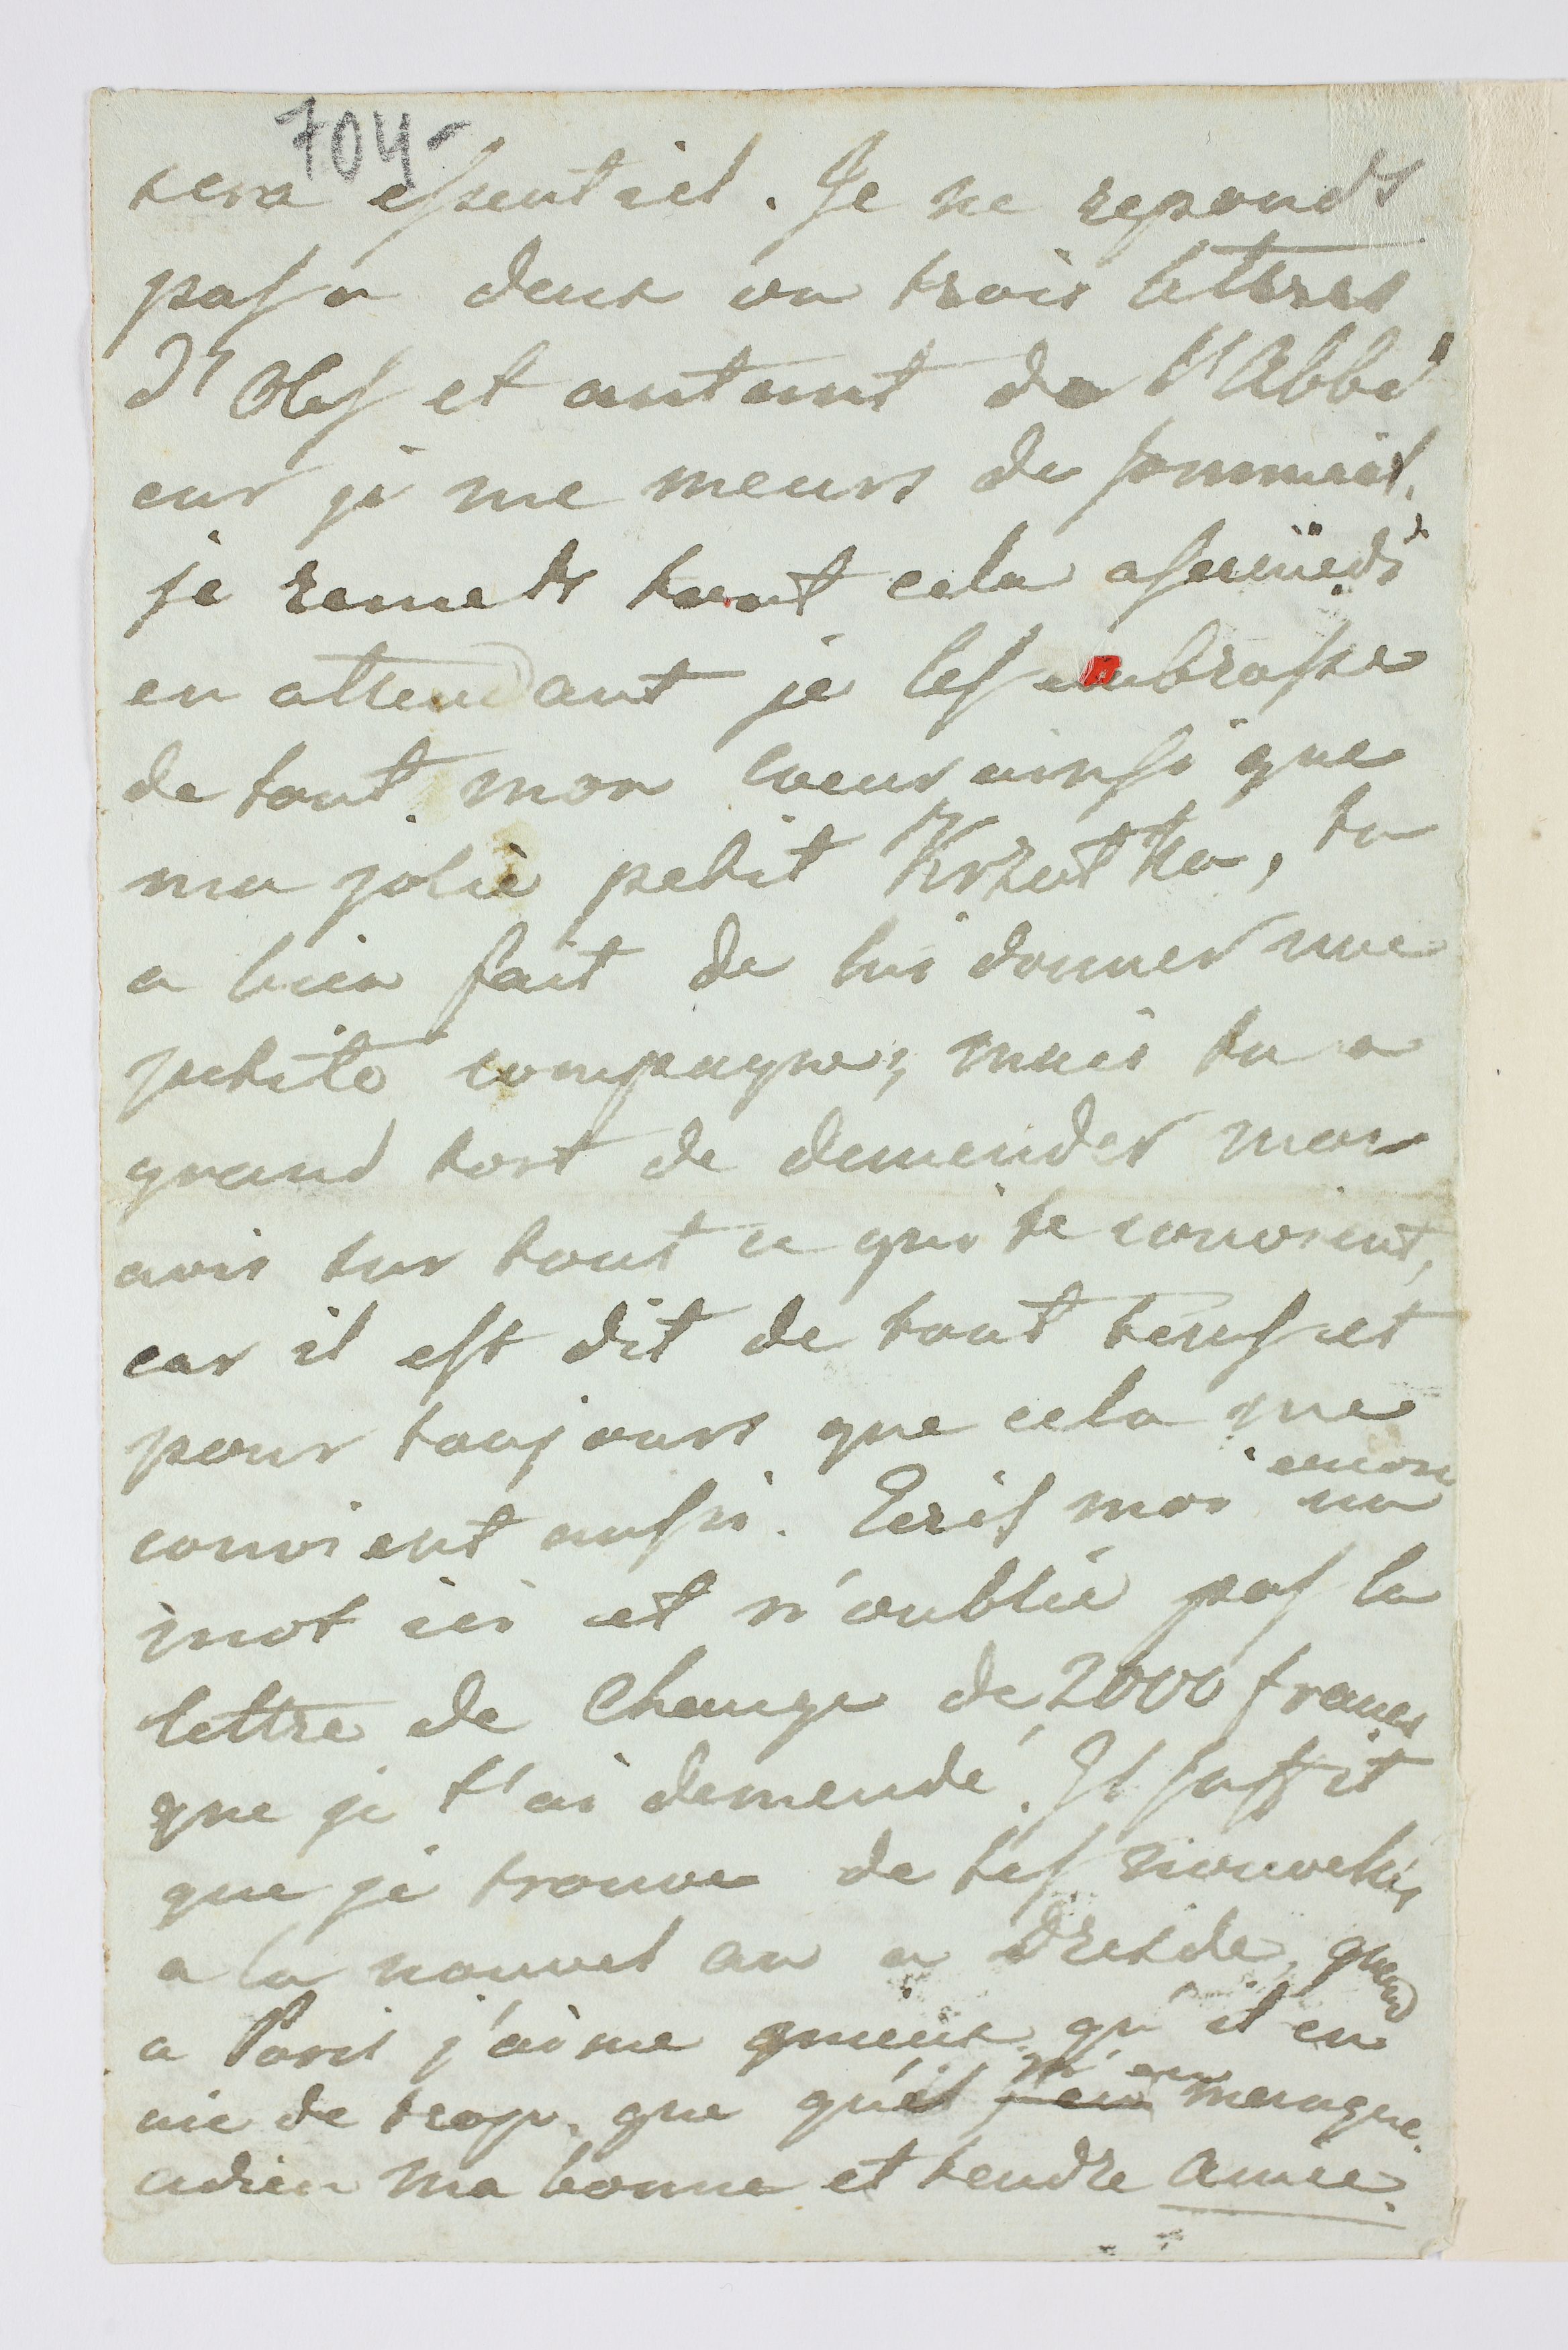 704-
sera essentiel. Je ne reponds
pas a deux ou trois lettres
d'Oles et autant de l'Abbé
car je me meurs de sommeil.
je remets tout cela a
en attendant je les embrasse
de tout mon coeur ainsi que
ma jolie petit Krzutka, tu
a bien fait de lui donner une
petite compagne, mais tu a
grand tort de demender mon
avis sur tout ce qui te convient,
car il est dit de tout tems et
pour toujours que cela me
convient aussi. Ecris moi encore un
mot ici et n'oublie pas la
lettre de Change de 2000 francs
que je t'ai demendé. Il suffit
que je trouve de tes nouvelles
a la nouvel an a Dresde, quand
a Paris j'aime mieux qu'il en
aie de trop, que qu'il m'en manque.
adieu ma bonne et tendre amie.